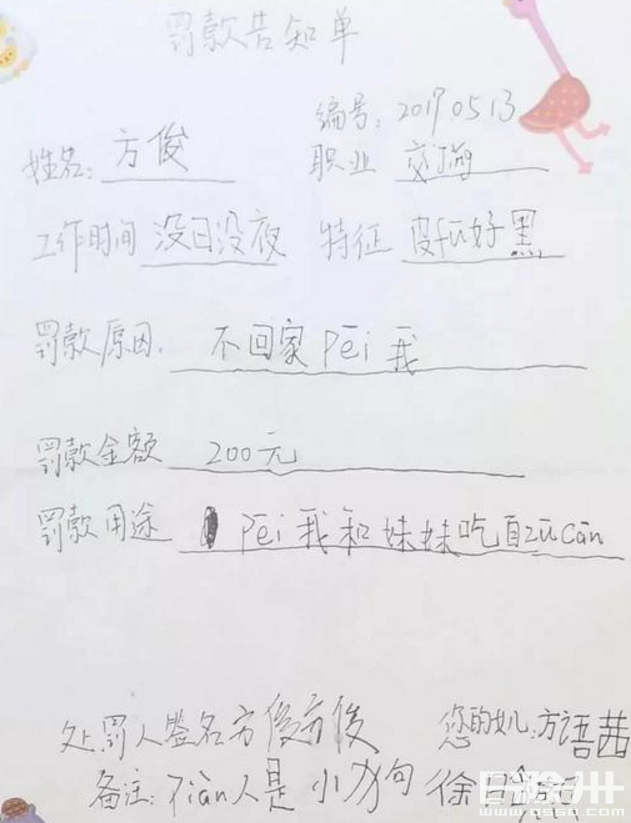 罚款告知单
编号：20170513
姓名：方俊 职业 交jǐng
工作时间 没日没夜 特征 皮fū好黑
罚款原因. 不回家péi我
罚款金额 200元
罚款用途 péi我和妹妹吃自zūcān
处罚人签名方俊方俊 您的女儿：方语茜
备注：piàn人是小狗